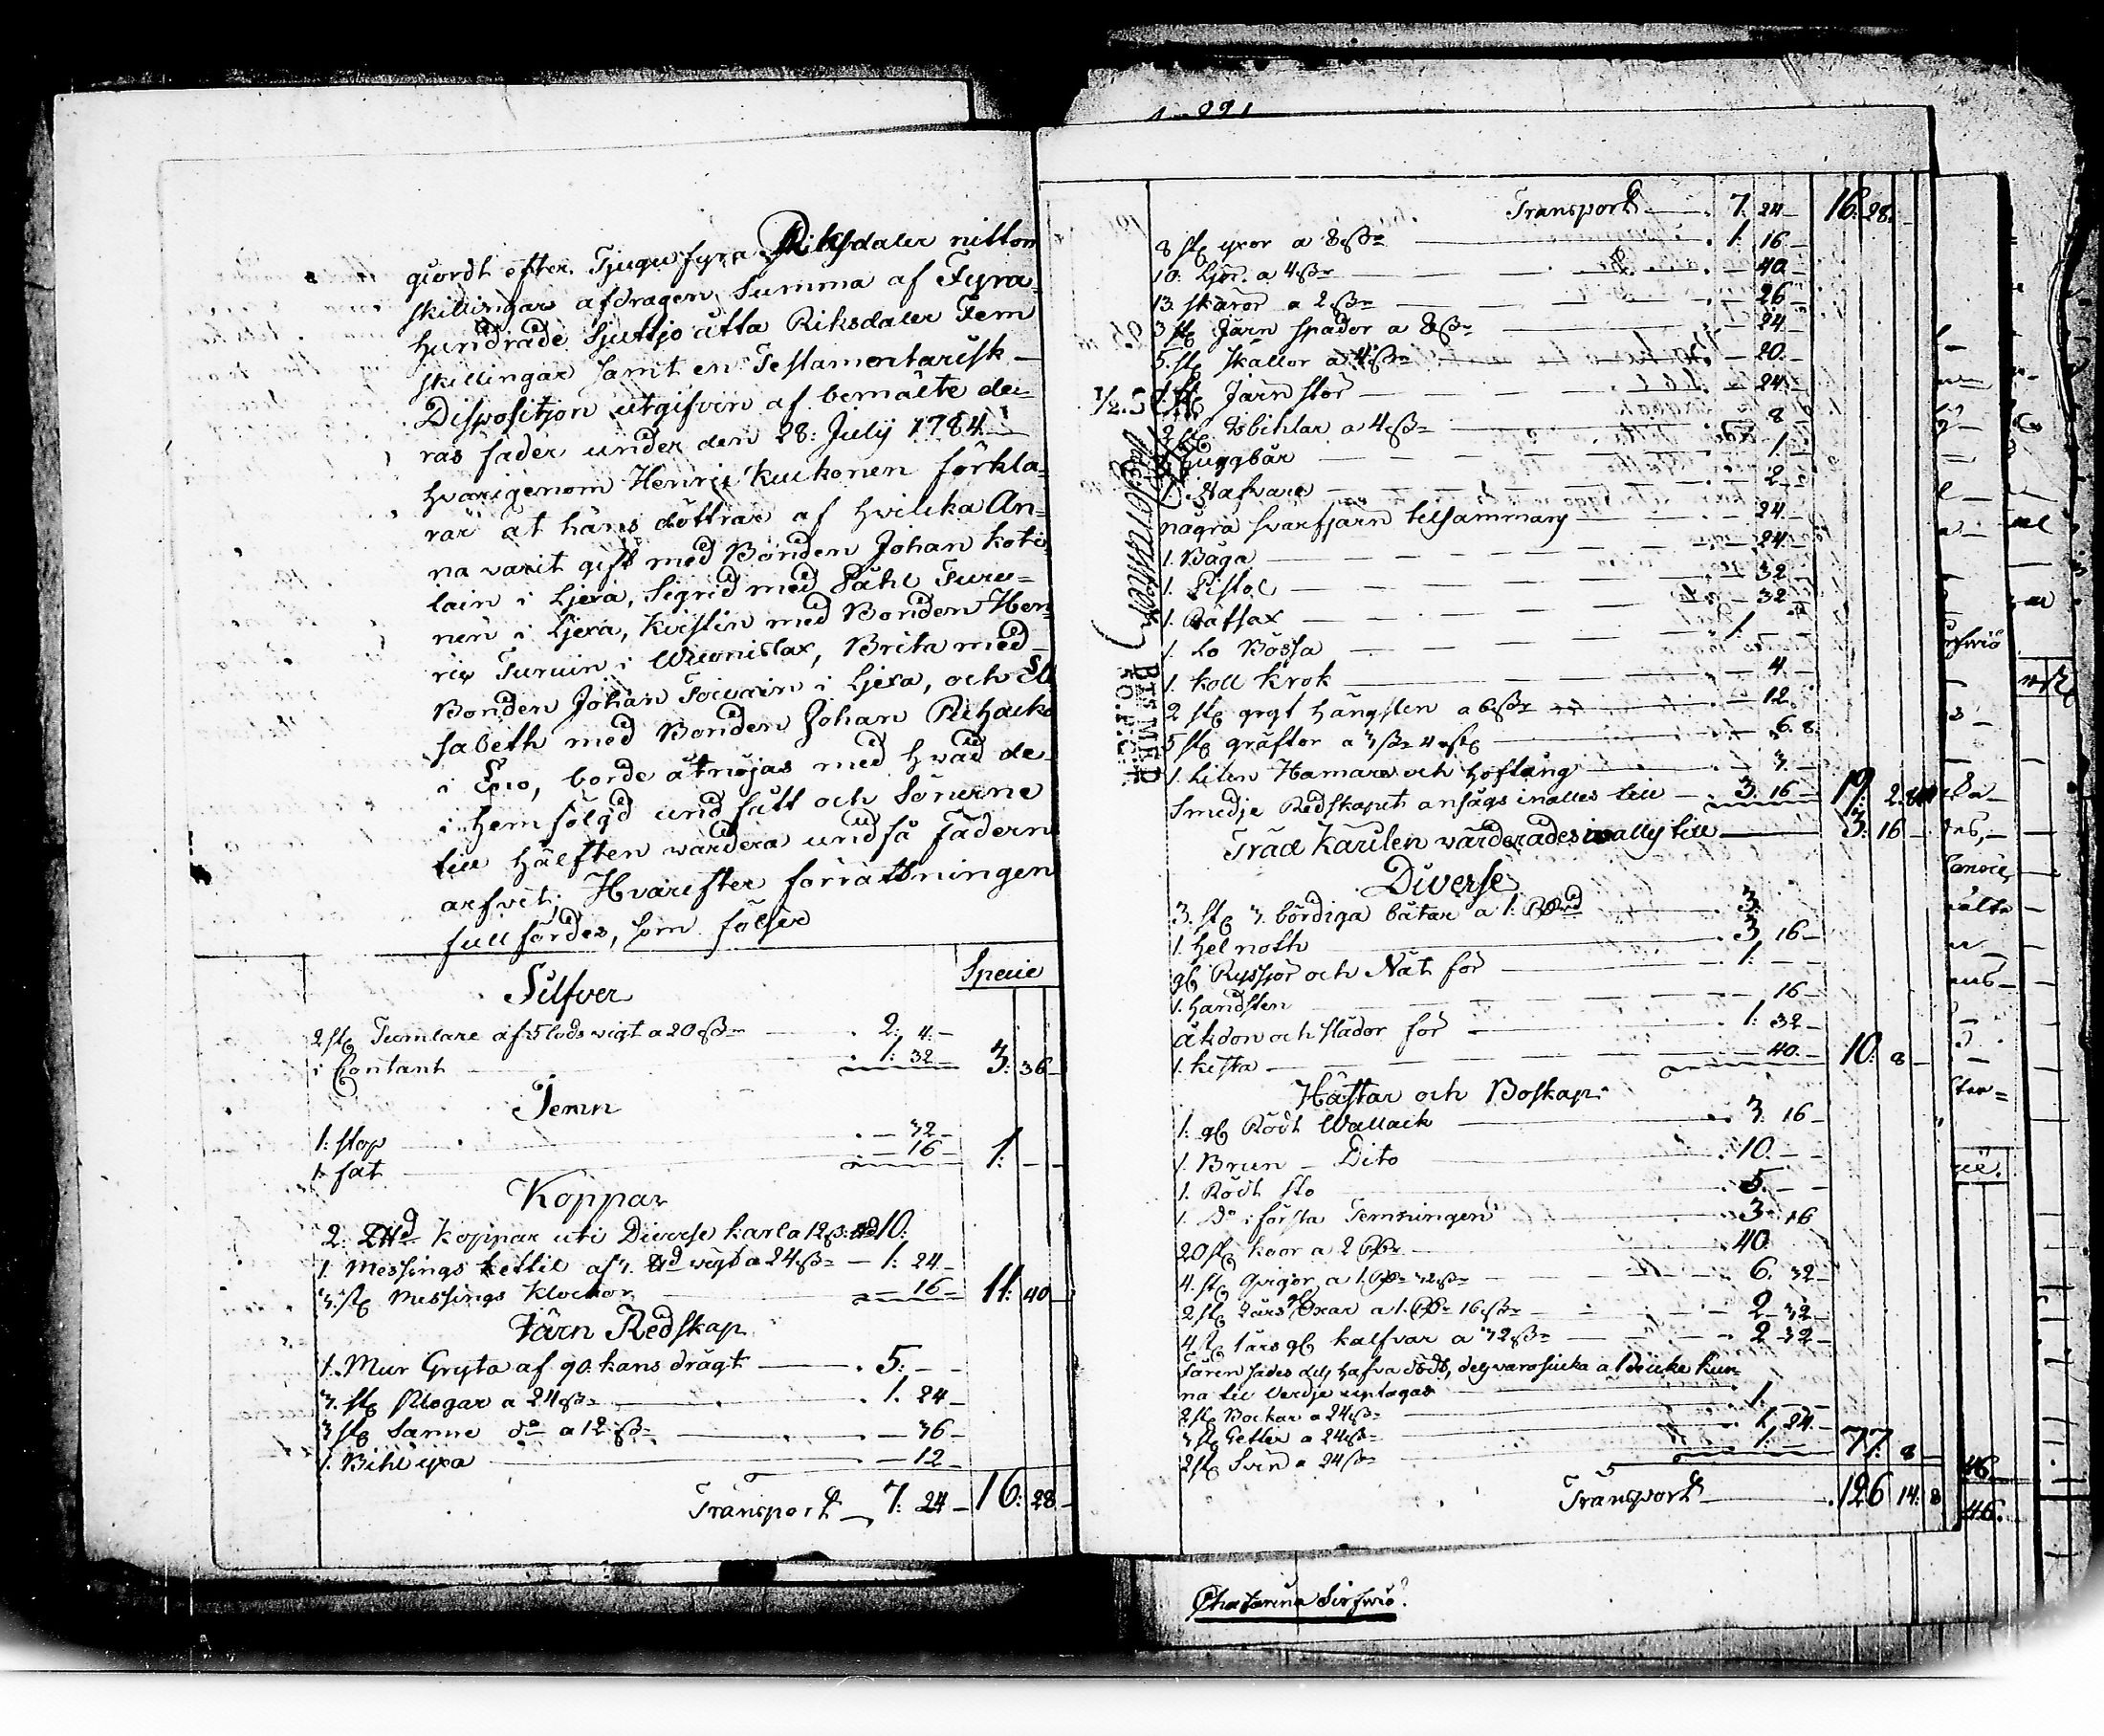 giordt efter Tjugu fyra Riksdaler nitton
skillingars afdragen Summa af Fyra
hundrade Sjuttjo åtta Riksdaler Fem
skillingar samt en Testamentarisk
Dispositjon utgifven af bemälte de-
ras fader under den 28: Julij 1784.
hvarigenom Henric Kuckonen förkla-
rar at hans döttrar af hvilcka An-
na varit gift med Bonden Johan Koti-
lain i Ljexa, Sigrid med Påhl Turu-
nen i Ljexa, Kristin med Bonden Hen
ric Turuin i Wuonislax, Brita med
Bonden Johan Toivain i Ljexa, och Eli
sabeth med Bonden Johan
i Eno, borde åtnöjas med hvad de
i hemfölgd undfått och Sönerne
till hälften vardera undfå Fädern
arfvet; Hvarefter förrättningen
fullfördes, som följer
Specie
Silfver
2 st Tumlare af 5 lods vigt a 20 ß 2: 4. –
i Contant 1: 32 3: 36 –
Tenn
1: stop – 32 –
1 fat – 16 – 1: – –
Koppar
2: Koppar uti Diverse karl a 12 ß 10:
1. Messings kettil af 3 vigt a 24 ß – 1: 24 –
3 st Messings Klockor – 16 – 11: 40 –
Järn Redskap
1. Mur Gryta af 90 kans drägt 5: – –
3. st Plogar a 24 ß 1. 24 –
3 st Samme do a 12 ß – 36 –
1. Bihl yxa – 12 –
Transport 7: 24 – 16: 28 –
Transport 7: 24 – 16: 28 –
8 st yxor a 8 ß 1: 16 –
10: Ljor a 4 ß – 40 –
13 skäror a 2 ß – 26 –
3 st Järn spador a 8 ß – 24 –
5. st skållor a 4 ß – 20 –
1 st Järn stör – 24 –
2 st Isbihlar a 4 ß 8 –
1 Huggbår 1 –
1. Nafvare – 2 –
några svarfjärn tilsammans 24 –
1. Båga 24 –
1. Pistol 32 –
1. Räfsax – 32 –
1. Lo Bössa 1: –
1. Koll Krok 4 –
2 st grgt hängslen a 6 ß – 12
5 st gräftor a 6. 8.
1. liten Hamare och Hoftång 3. –
Smedje Redskapet ansågs inalles till 3. 16 – 19: 2. 8
Träd Kärilen värderades inalles till 3: 16 –
Diverse
3. st 3. bördiga båtar a 1: 3.
1. hel noth 3. 16 –
gl Ryssjor och Nät för 1: – –
1. handsten 16 –
Åkdon och slädor för 1: 32 –
1. kista 40 – 10: 8 –
Hästar och Boskap
1: gl Rödt Wallack 3. 16 –
1. Brun – Dito 10. – –
1. Rödt sto 5. – –
1. do i första Temningen 3. 16
20 st koor a 2 40
4. st qvigor a 1. 32 ß 6. 32 –
2 st 2 års gl Oxar a 1. 16 ß 2. 32 –
4 st 1 års gl kalfvar a 32 ß 2. 32 –
Fåren sades dels hafva dödt, dels vara siuka at de icke kun
na til Verdje uptagas
2 st Bockar a 24 ß 1. –
3 st Getter a 24 ß 1. 24 –
2 st Svin a 24 ß 1. – 77: 8 –
Transport 126 14: 8
46.
46.
Chatarina Sirfwiö?